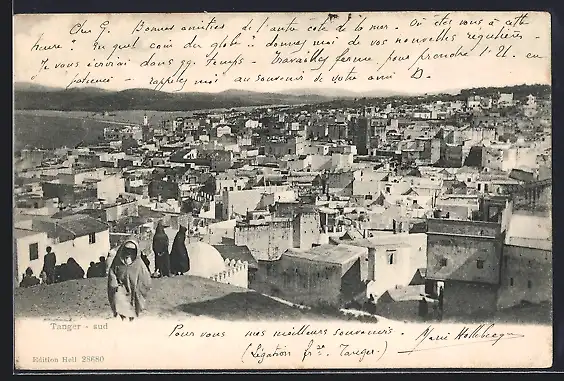 Cher G. Bonnes amitiés de l'autre côté de la mer. Où êtes vous à cette
heure? En quel coin du globe? donnez moi de vos nouvelles régulières.
Je vous écrirai dans qq. temps. Travaillez ferme pour prendre l'U. en
patience - rappelez moi au souvenir de votre ami D.
Tanger - sud
Pour vous mes meilleurs souvenirs
(Légation frse. Tanger)
Edition Hell 28680